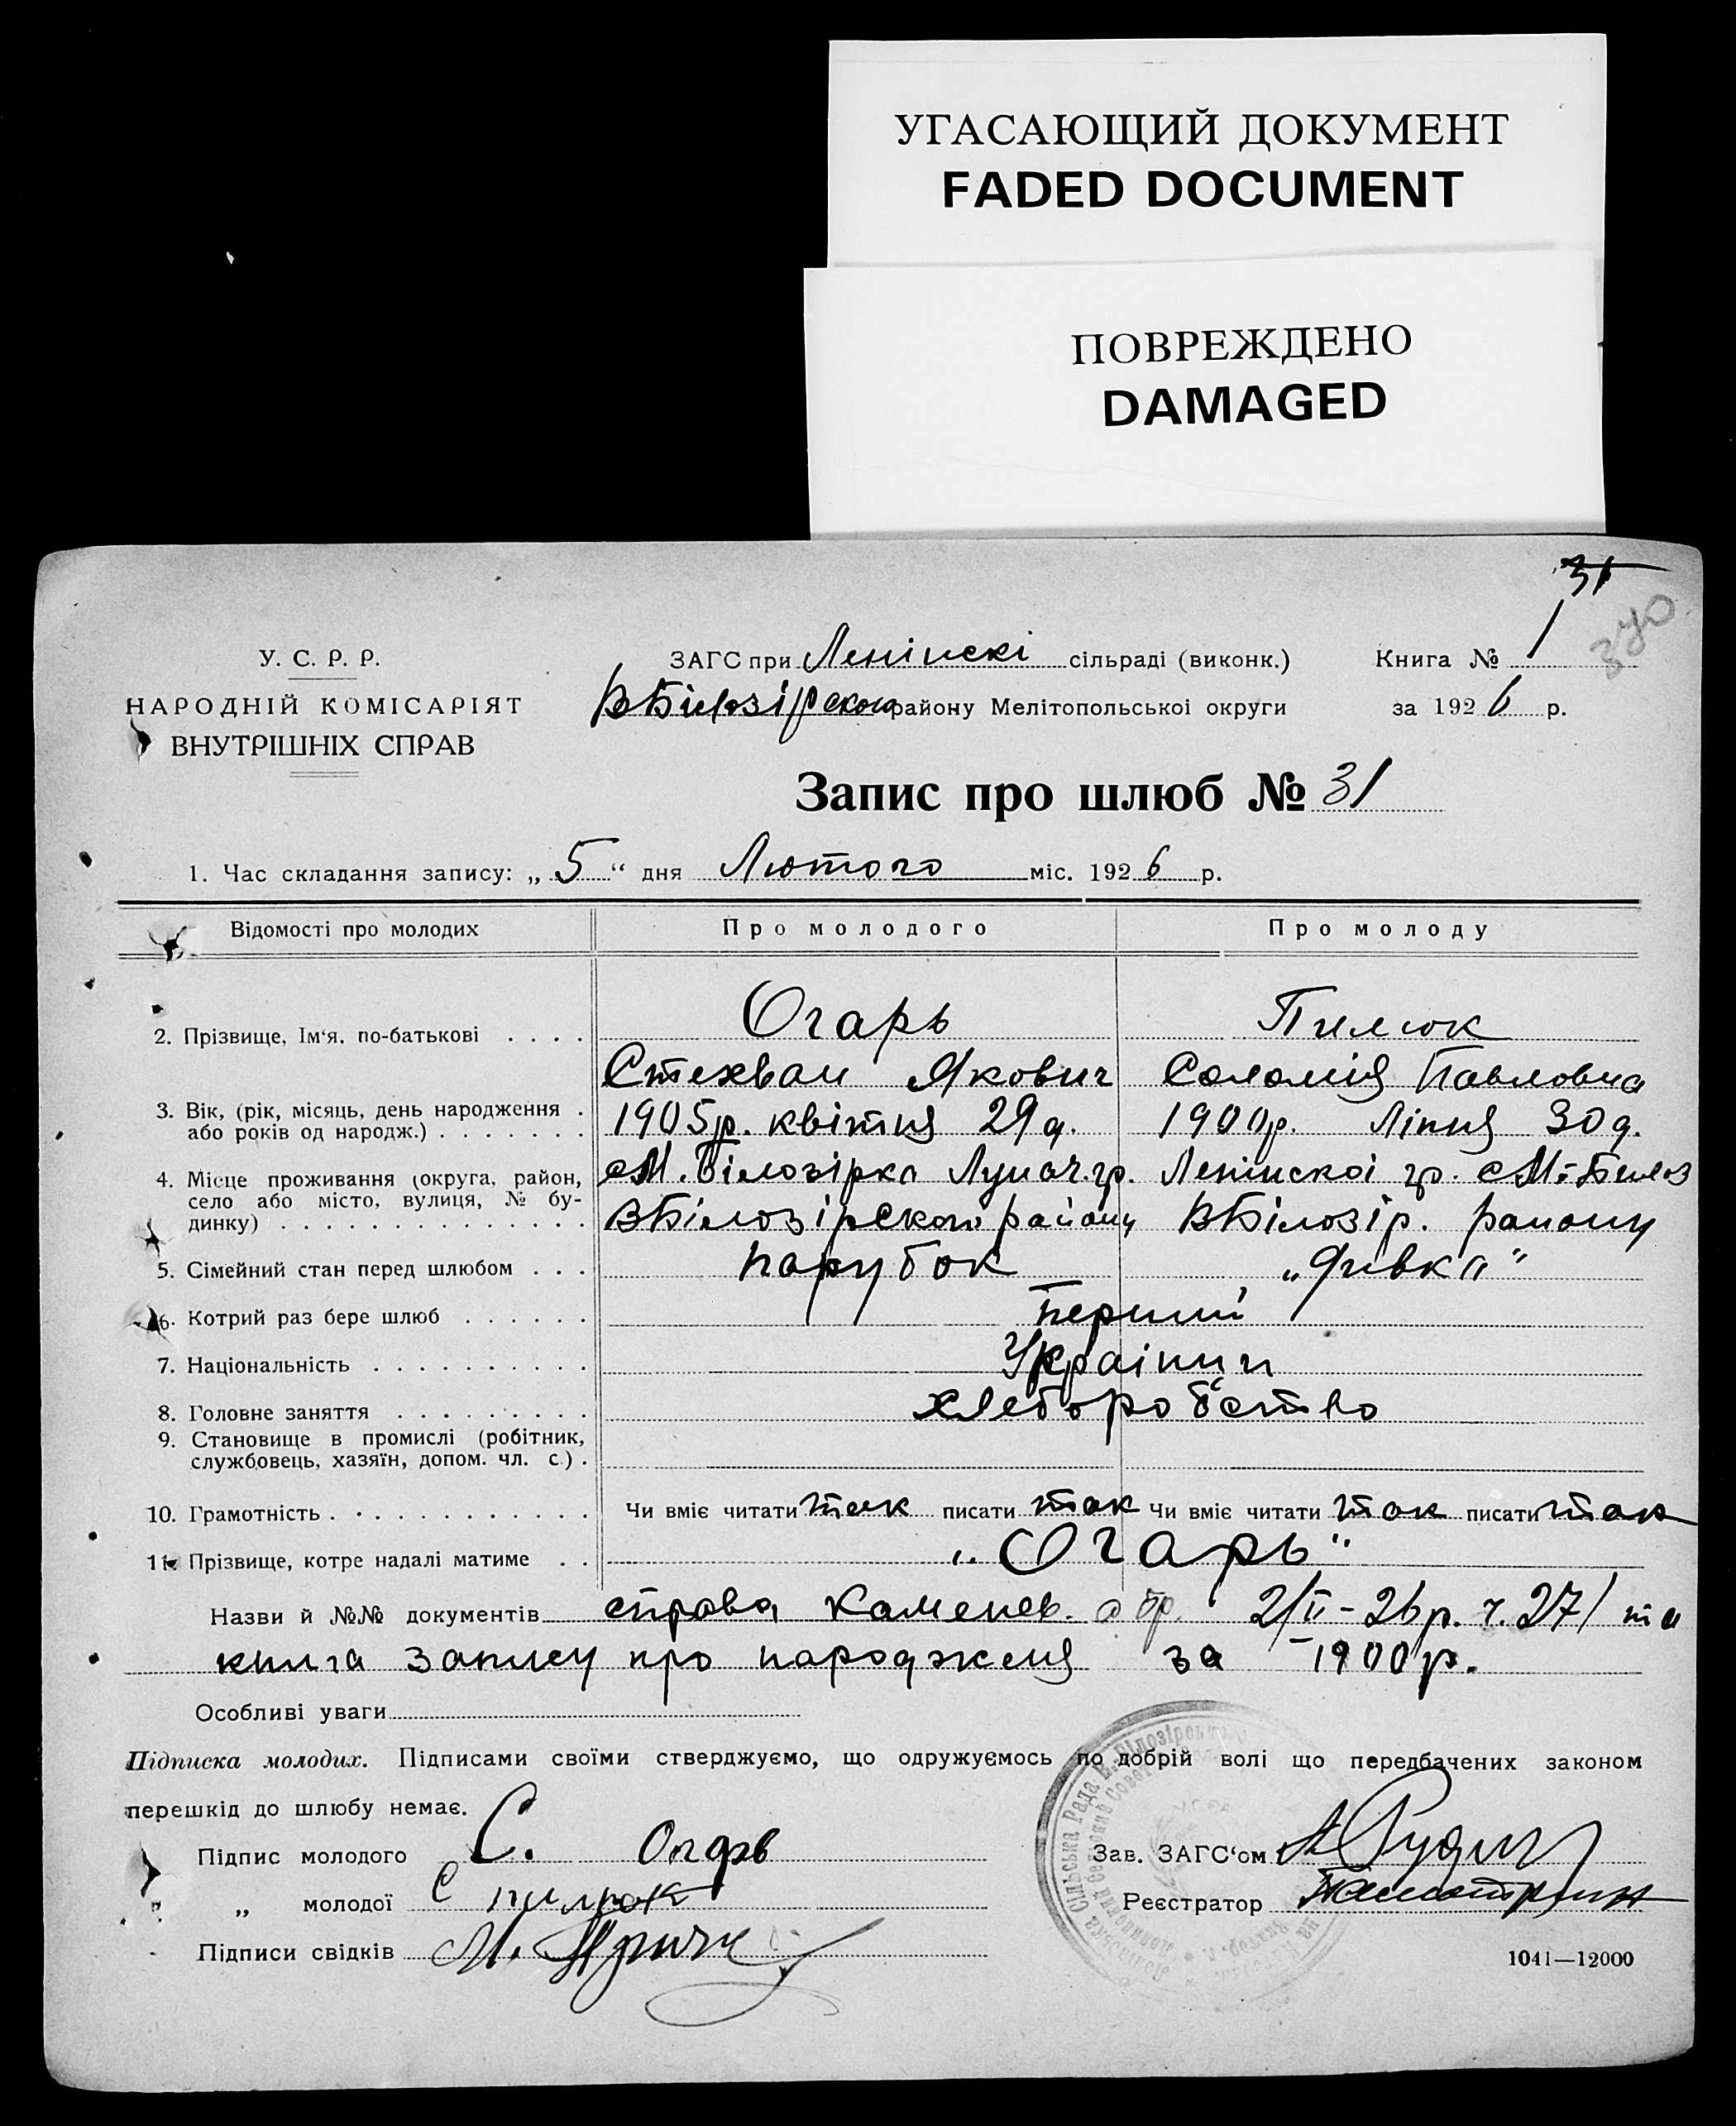 УГАСАЮЩИЙ ДОКУМЕНТ
FADED DOCUMENT
ПОВРЕЖДЕНО
DAMAGED
31
370
У. С. Р. Р.
НАРОДНІЙ КОМІСАРІЯТ
ВНУТРІШНІХ СПРАВ
ЗАГС при Ленінскі сільраді (виконк.)
ВБілозірского району Мелітопольскоі округи
Книга № 1
за 1926 р.
Запис про шлюб № 31
1. Час складання запису: „5“ дня Лютого міс. 1926 р.
Відомості про молодих Про молодого Про молоду
2. Прізвище, Ім'я. по-батькові . . . . Огарь Пилюк
Стехван Якович Саломія Павловна
3. Вік, (рік, місяць, день народження . 1905р. квітня 29 д. 1900р. Ліпня 30 д.
або років од народж.) . . . . . . .
4. Місце проживання (округа, район, сМ. Білозірка Лунач.гр. Ленінскоі гр. сМ-Білоз
село або місто, вулиця, № бу-
динку) . . . . . . . . . . . . . . ВБілозірского району ВБілозір. району
5. Сімейний стан перед шлюбом . . . парубок „дивка“
6. Котрий раз бере шлюб . . . . . . перший
7. Національність . . . . . . . . . . Українци
8. Головне заняття . . . . . . . . . хлеборобство
9. Становище в промислі (робітник,
службовець, хазяїн, допом. чл. с.) .
10. Грамотність . . . . . . . . . . . . Чи вміє читати так писати так Чи вміє читати так писати так
11. Прізвище, котре надалі матиме . . „Огарь“
Назви й №№ документів справа Каменев. 2/II-26р. ч. 27/ та
книга запису про народженя за 1900р.
Особливі уваги
Підписка молодих. Підписами своїми стверджуємо, що одружуємось по добрій волі що передбачених законом
перешкід до шлюбу немає.
Підпис молодого С. Огарь
„ молодої С пилюк
Підписи свідків
Зав. ЗАГС'ом
Реєстратор
1041—12000